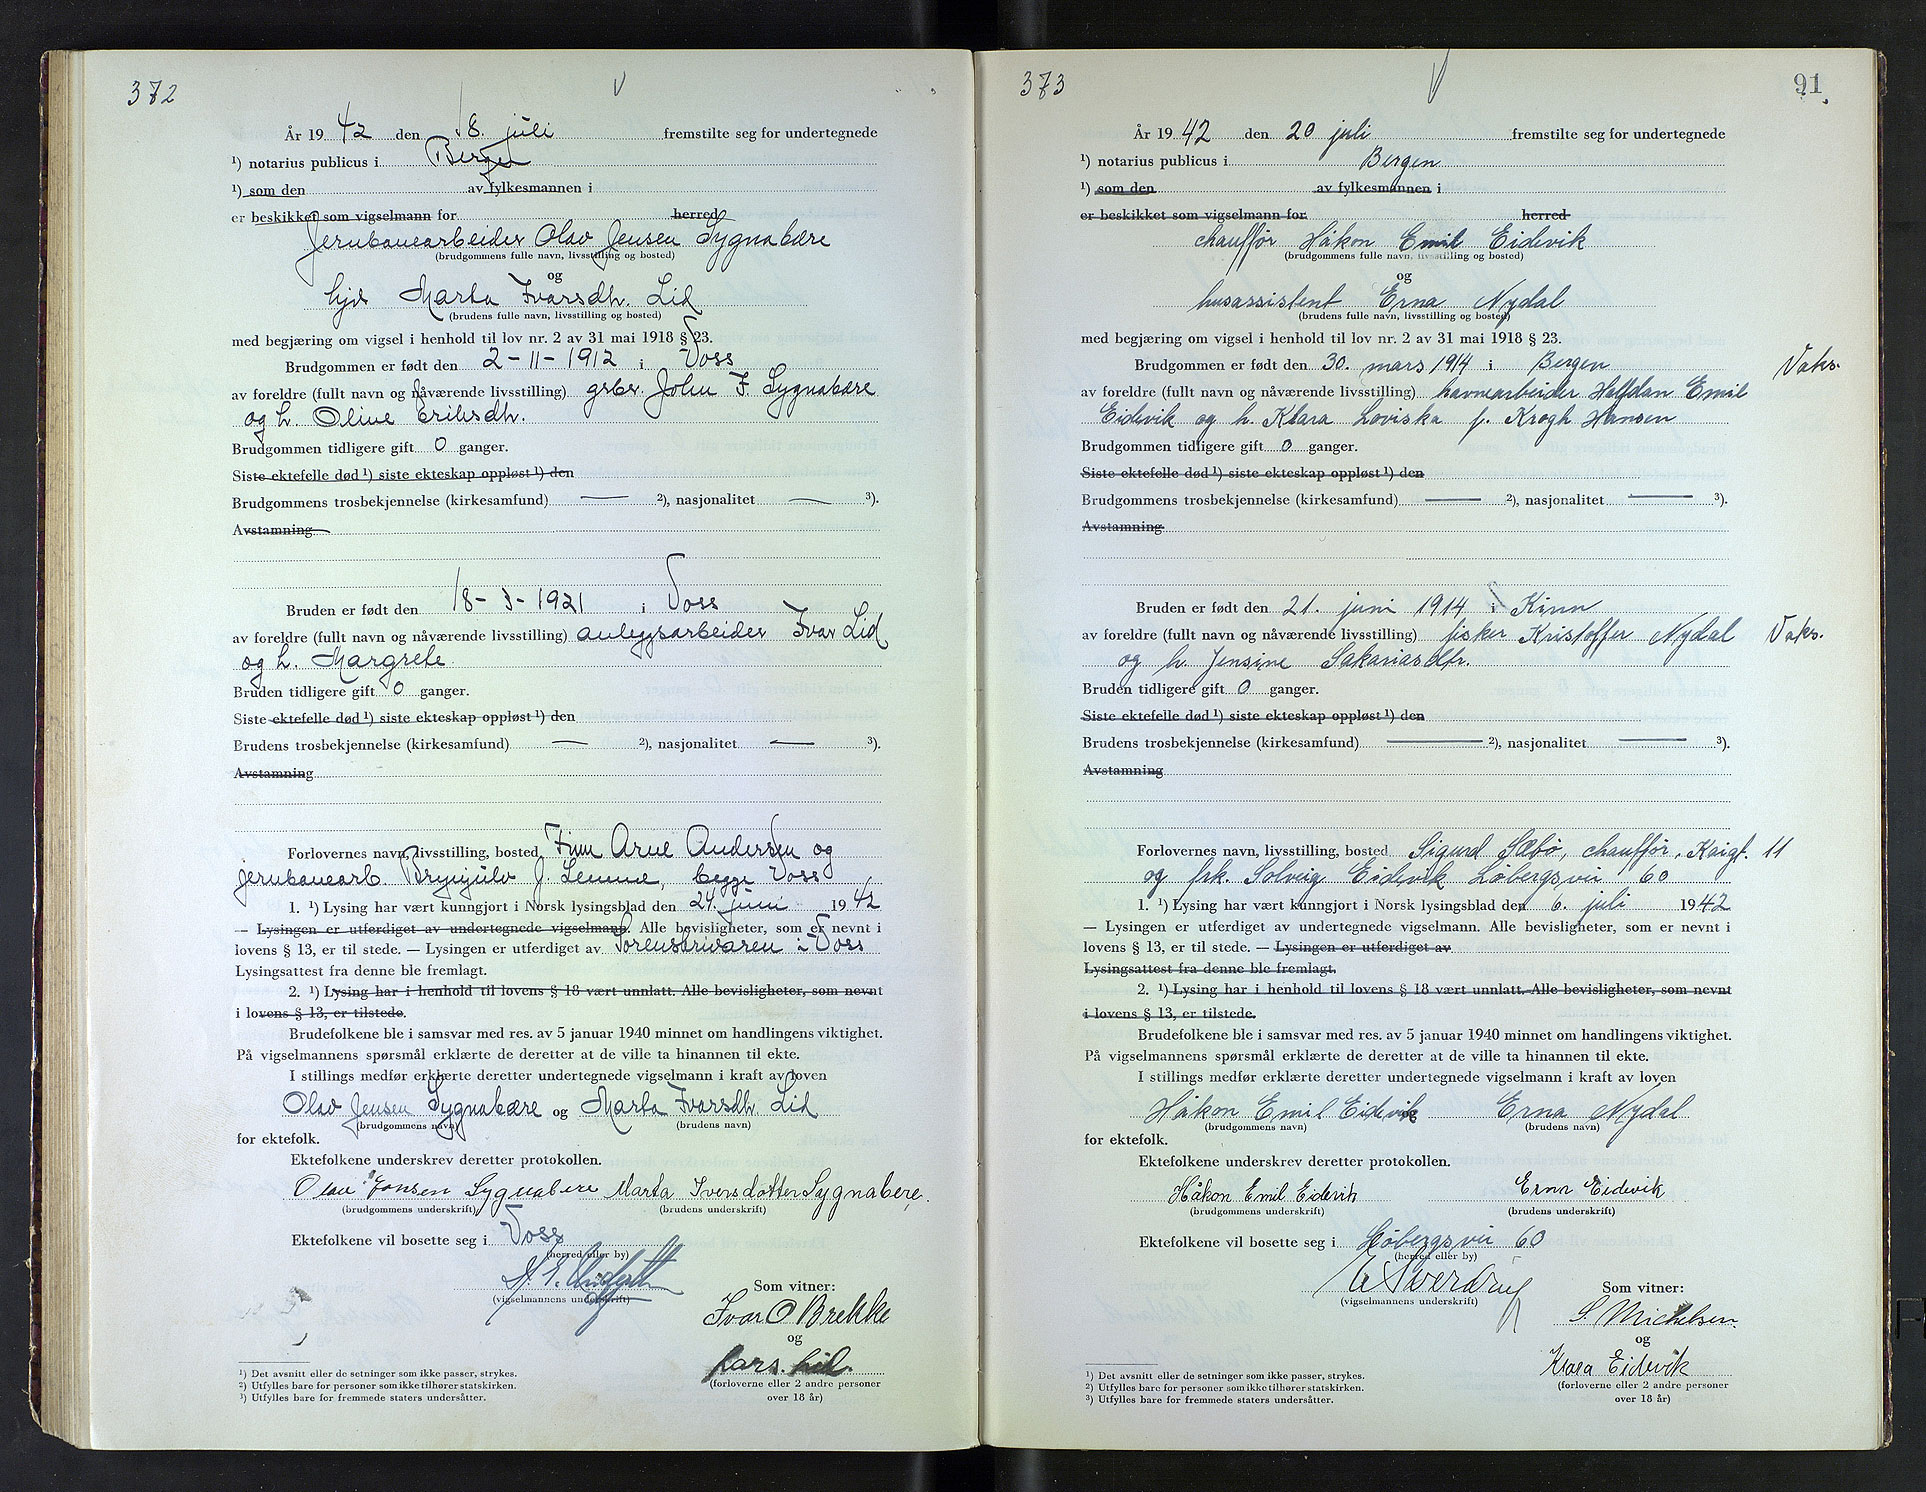 372
År 19 42 den 18. juli fremstilte seg for undertegnede
¹) notarius publicus i Bergen
¹) som den av fylkesmannen i
er beskikket som vigselmann for herred
Jernbanearbeider Olav Jensen Sygnabære
(brudgommens fulle navn, livsstilling og bosted)
og
hjv Marta Ivarsdtr. Lid
(brudens fulle navn, livsstilling og bosted)
med begjæring om vigsel i henhold til lov nr. 2 av 31 mai 1918 § 23.
Brudgommen er født den 2-11-1912 i Voss
av foreldre (fullt navn og nåværende livsstilling) grbr. John F. Sygnabære
og h. Oline Eriksdtr.
Brudgommen tidligere gift 0 ganger.
Siste ektefelle død ¹) siste ekteskap oppløst ¹) den
Brudgommens trosbekjennelse (kirkesamfund) — ²), nasjonalitet — ³).
Avstamning
Bruden er født den 18- 3- 1921 i Voss
av foreldre (fullt navn og nåværende livsstilling) anleggsarbeider Ivar Lid
og h. Margrete
Bruden tidligere gift 0 ganger.
Siste ektefelle død ¹) siste ekteskap oppløst ¹) den
Brudens trosbekjennelse (kirkesamfund) — ²), nasjonalitet — ³).
Avstamning
Forlovernes navn, livsstilling, bosted Finn Arne Andersen og
jernbanearb. Brynjulv J. Lemme, begge Voss
1. ¹) Lysing har vært kunngjort i Norsk lysingsblad den 24. juni 19 42
— Lysingen er utferdiget av undertegnede vigselmann. Alle bevisligheter, som er nevnt i
lovens § 13, er til stede. — Lysingen er utferdiget av Sorenskrivaren i Voss
Lysingsattest fra denne ble fremlagt.
2. ¹) Lysing har i henhold til lovens § 18 vært unnlatt. Alle bevisligheter, som nevnt
i lovens § 13, er tilstede.
Brudefolkene ble i samsvar med res. av 5 januar 1940 minnet om handlingens viktighet.
På vigselmannens spørsmål erklærte de deretter at de ville ta hinannen til ekte.
I stillings medfør erklærte deretter undertegnede vigselmann i kraft av loven
Olav Jensen Sygnabære og Marta Ivarsdtr. Lid
(brudgommens navn) (brudens navn)
for ektefolk.
Ektefolkene underskrev deretter protokollen.
Olav Jonsen Sygnabere Marta Iversdotter Sygnabere.
(brudgommens underskrift) (brudens underskrift)
Ektefolkene vil bosette seg i Voss
(herred eller by)
(vigselmannens underskrift)
Som vitner:
Ivar O Brekke
og
Lars. Lid.
(forloverne eller 2 andre personer
over 18 år)
¹) Det avsnitt eller de setninger som ikke passer, strykes.
²) Utfylles bare for personer som ikke tilhører statskirken.
³) Utfylles bare for fremmede staters undersåtter.
373
91
År 19 42 den 20 juli fremstilte seg for undertegnede
¹) notarius publicus i Bergen
¹) som den av fylkesmannen i
er beskikket som vigselmann for herred
chauffør Håkon Emil Eidevik
(brudgommens fulle navn, livsstilling og bosted)
og
husassistent Erna Nydal
(brudens fulle navn, livsstilling og bosted)
med begjæring om vigsel i henhold til lov nr. 2 av 31 mai 1918 § 23.
Brudgommen er født den 30. mars 1914 i Bergen Vaks.
av foreldre (fullt navn og nåværende livsstilling) havnearbeider Halfdan Emil
Eidevik og h. Klara Loviska f. Krogh Hansen
Brudgommen tidligere gift 0 ganger.
Siste ektefelle død ¹) siste ekteskap oppløst ¹) den
Brudgommens trosbekjennelse (kirkesamfund) — ²), nasjonalitet — ³).
Avstamning
Bruden er født den 21. juni 1914 i Kinn
av foreldre (fullt navn og nåværende livsstilling) fisker Kristoffer Nydal Vaks.
og h. Jensine Sakariasdtr.
Bruden tidligere gift 0 ganger.
Siste ektefelle død ¹) siste ekteskap oppløst ¹) den
Brudens trosbekjennelse (kirkesamfund) — ²), nasjonalitet — ³).
Avstamning
Forlovernes navn, livsstilling, bosted Sigurd Sæbø, chauffør, Kaigt. 11
og frk. Solveig Eidevik Løbergsvei 60
1. ¹) Lysing har vært kunngjort i Norsk lysingsblad den 6. juli 19 42
— Lysingen er utferdiget av undertegnede vigselmann. Alle bevisligheter, som er nevnt i
lovens § 13, er til stede. — Lysingen er utferdiget av
Lysingsattest fra denne ble fremlagt.
2. ¹) Lysing har i henhold til lovens § 18 vært unnlatt. Alle bevisligheter, som nevnt
i lovens § 13, er tilstede.
Brudefolkene ble i samsvar med res. av 5 januar 1940 minnet om handlingens viktighet.
På vigselmannens spørsmål erklærte de deretter at de ville ta hinannen til ekte.
I stillings medfør erklærte deretter undertegnede vigselmann i kraft av loven
Håkon Emil Eidevik og Erna Nydal
(brudgommens navn) (brudens navn)
for ektefolk.
Ektefolkene underskrev deretter protokollen.
Håkon Emil Eidevik Erna Eidevik
(brudgommens underskrift) (brudens underskrift)
Ektefolkene vil bosette seg i Løbergsvei 60
(herred eller by)
Sverdrup
(vigselmannens underskrift)
Som vitner:
S. Michelsen
og
Klara Eidevik
(forloverne eller 2 andre personer
over 18 år)
¹) Det avsnitt eller de setninger som ikke passer, strykes.
²) Utfylles bare for personer som ikke tilhører statskirken.
³) Utfylles bare for fremmede staters undersåtter.